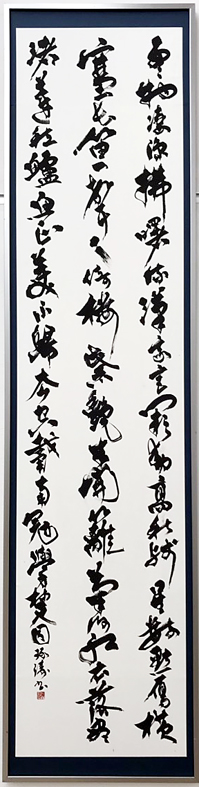 雲物凄涼拂曙流漢家宮闕動高秋残星數點雁横
塞長笛一聲人倚楼紫艶半開籬菊静紅衣落盡
渚蓮愁鱸魚正美不歸去空戴南冠學楚囚